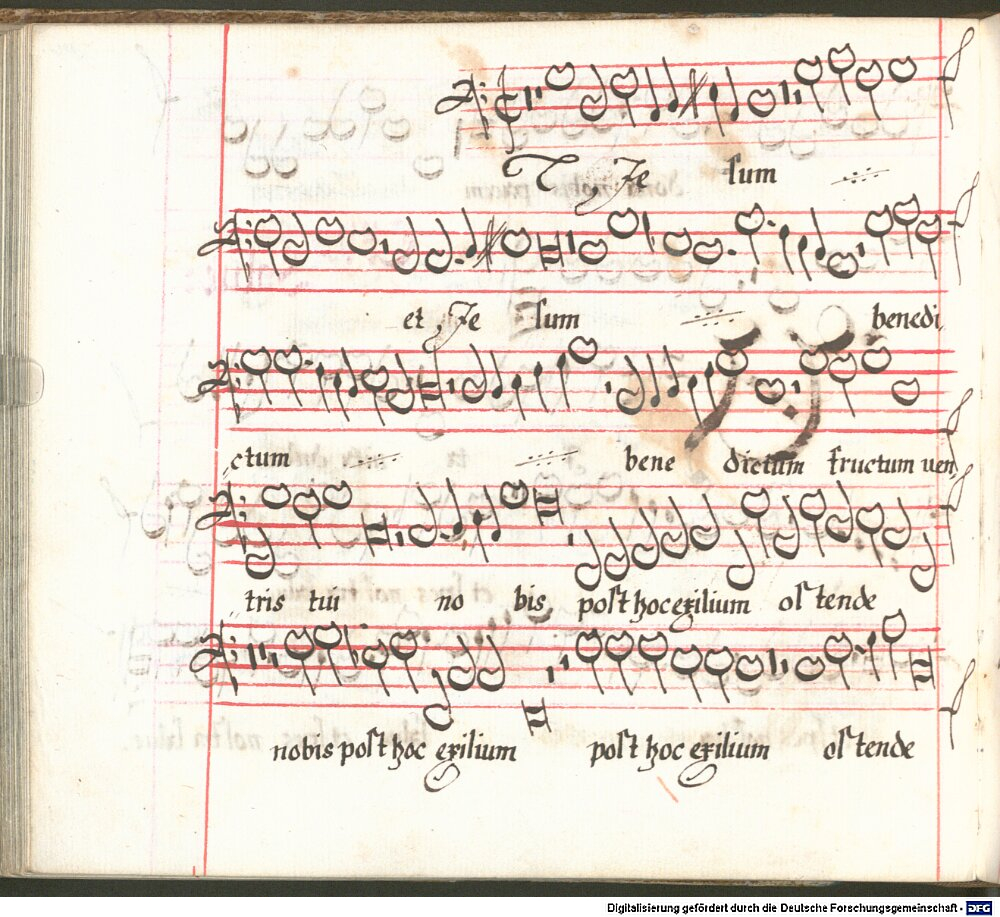 Et Jesum
et Jesum benedi
ctum bene dictum fructum uen
tris tui no bis, post hoc exilium ostende
nobis post hoc exilium post hoc exilium ostende
Digitalisierung gefördert durch die Deutsche Forschungsgemeinschaft - DFG